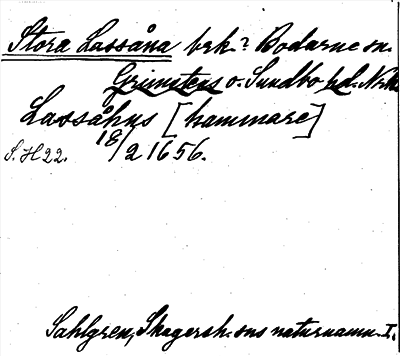 Stora Lassåna brk.? Bodarne sn.
Grimstens o. Sundbo hd. Närke
Lassåhus [hammare]
S. H 22. 18/2 1656.
Sahlgren, Skagersh. sns naturnamn. I.